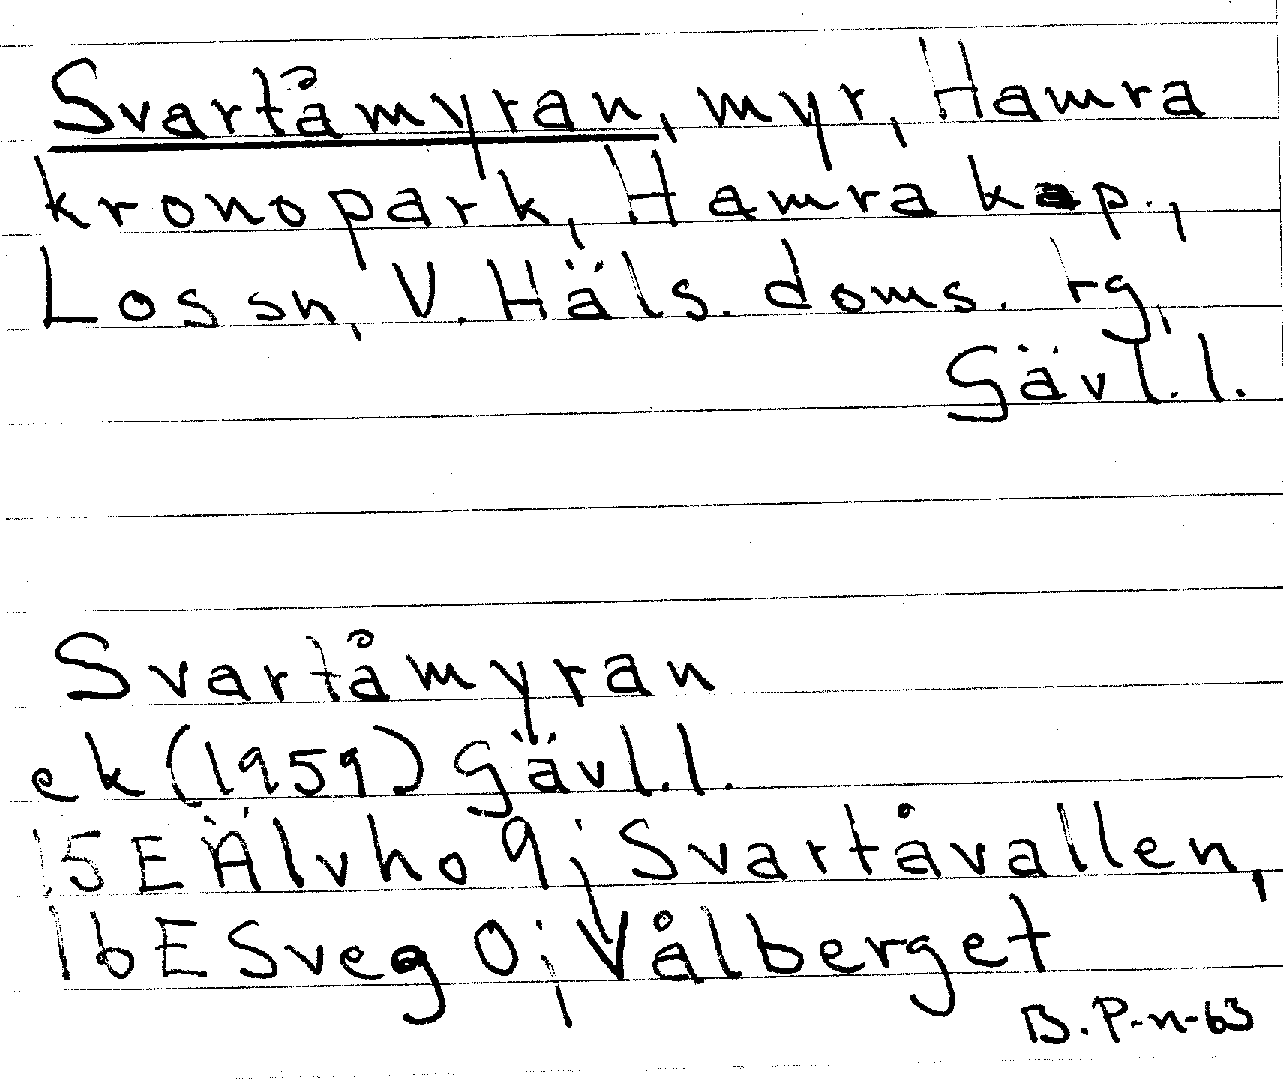 Svartåmyran, myr, Hamra
kronopark, Hamra kap.,
Los sn, V. Häls. doms. tg,
Gävl. l.
Svartåmyran
ek (1959) Gävl. l.
15E Älvho 9i Svartåvallen,
16E Sveg 0i Vålberget
B. P-n-63